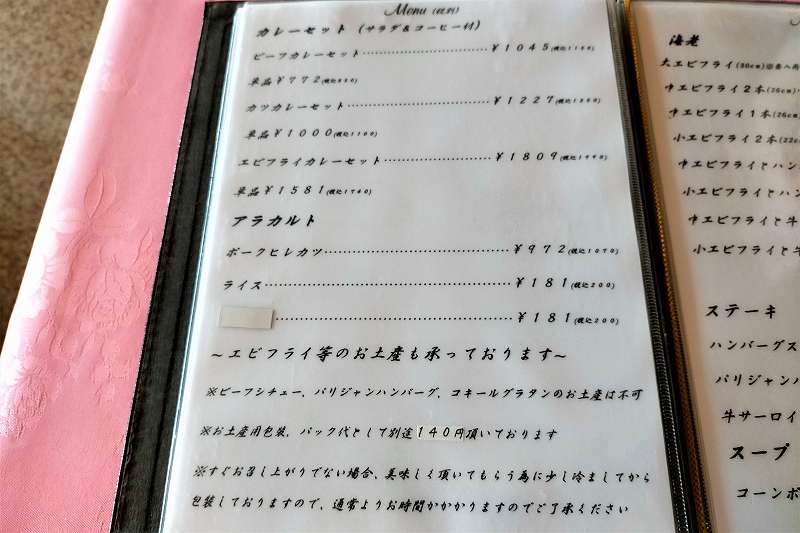 Menu (税別)
カレーセット (サラダ&コーヒー付)
ビーフカレーセット ¥1045(税込1150)
単品¥772(税込850)
カツカレーセット ¥1227(税込1350)
単品¥1000(税込1100)
エビフライカレーセット ¥1809(税込1990)
単品¥1581(税込1740)
アラカルト
ポークヒレカツ ¥972(税込1070)
ライス ¥181(税込200)
¥181(税込200)
~エビフライ等のお土産も承っております~
※ビーフシチュー、パリジャンハンバーグ、コキールグラタンのお土産は不可
※お土産用包装、パック代として別途140円頂いております
※すぐお召し上がりでない場合、美味しく頂いてもらう為に少し冷ましてから
包装しておりますので、通常よりお時間かかかりますのでご了承ください
海老
大エビフライ(30cm)
中エビフライ2本(26cm)
中エビフライ1本(26cm)
小エビフライ2本(22c
中エビフライとハン
小エビフライとハン
中エビフライと牛
小エビフライと牛
ステーキ
ハンバーグス
パリジャン
牛サーロイ
スープ
コーンポ